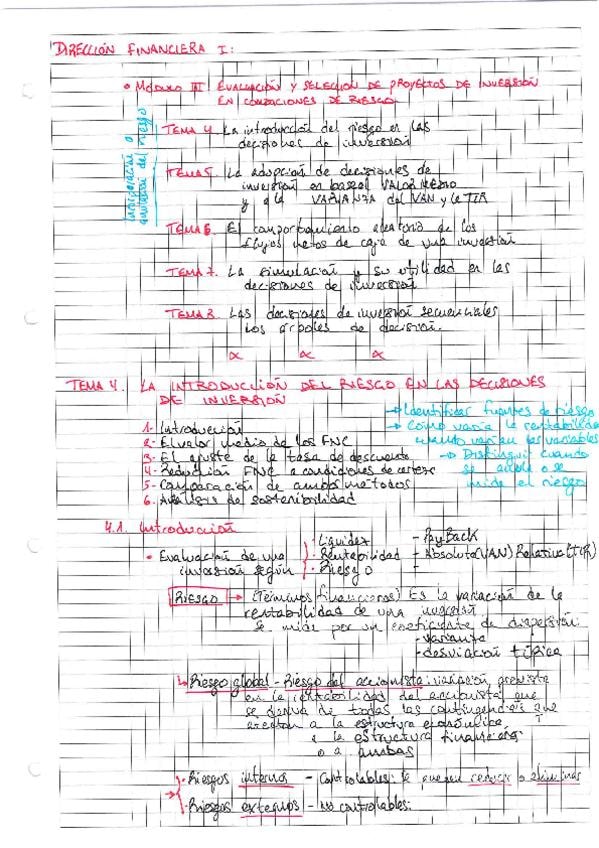 DIRECCIÓN FINANCIERA I:
• MÓDULO III EVALUACIÓN Y SELECCIÓN DE PROYECTOS DE INVERSIÓN
EN CONDICIONES DE RIESGO.
Incorporación o
análisis del riesgo
TEMA 4. La introducción del riesgo en las
decisiones de inversión
TEMA 5. La adopción de decisiones de
inversión en base al VALOR MEDIO
y a la VARIANZA del VAN y la TIR
TEMA 6. El comportamiento aleatorio de los
flujos netos de caja de una inversión
TEMA 7. La simulación y su utilidad en las
decisiones de inversión
TEMA 8. Las decisiones de inversión secuenciales
Los árboles de decisión.
∝ ∝ ∝
TEMA 4. LA INTRODUCCIÓN DEL RIESGO EN LAS DECISIONES
DE INVERSIÓN
→ Identificar fuentes de riesgo
→ Cómo varía la rentabilidad
cuando varían las variables
→ Distinguir cuando
se analiza o se
mide el riesgo
1- Introducción
2- El valor medio de los FNC
3- El ajuste de la tasa de descuento
4- Reducción FNC a condiciones de certeza
5- Comparación de ambos métodos
6. Análisis de sostenibilidad
4.1. Introducción
• Evaluación de una
inversión según
· Liquidez - PayBack
· Rentabilidad - Absoluto (VAN) Relativa (TIR)
· Riesgo -
RIESGO → (Términos financieros) Es la variación de la
rentabilidad de una inversión
Se mide por un coeficiente de dispersión
- varianza
- desviación típica
↳ Riesgo global - Riesgo del accionista: variación prevista
en la rentabilidad del accionista que
se deriva de todas las contingencias que
afectan a la estructura económica,
a la estructura financiera
o a ambas
· Riesgos internos - Controlables: Se pueden reducir o eliminar
· Riesgos externos - No controlables: